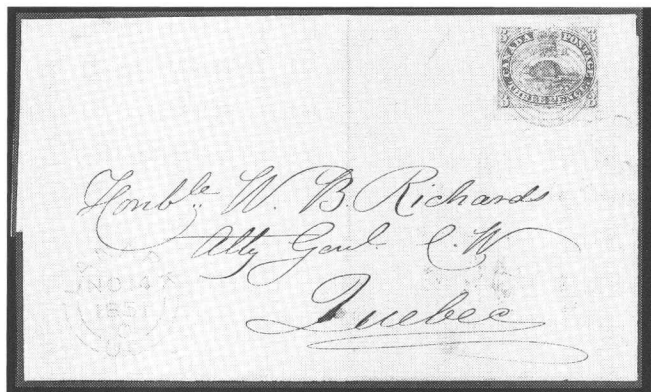 3 CANADA POSTAGE 3
3 THREE PENCE 3
Honble W. B. Richards
Atty Genl. C. W
Quebec
NO 14
1851